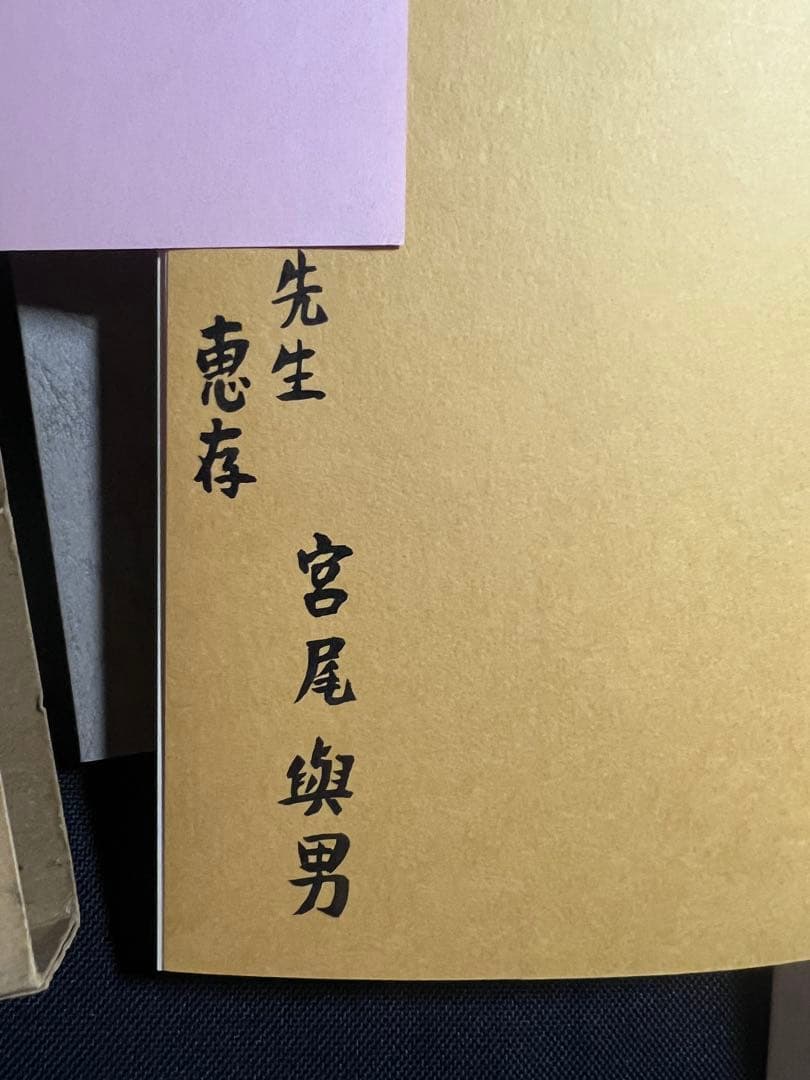 先生
惠存
宮尾與男